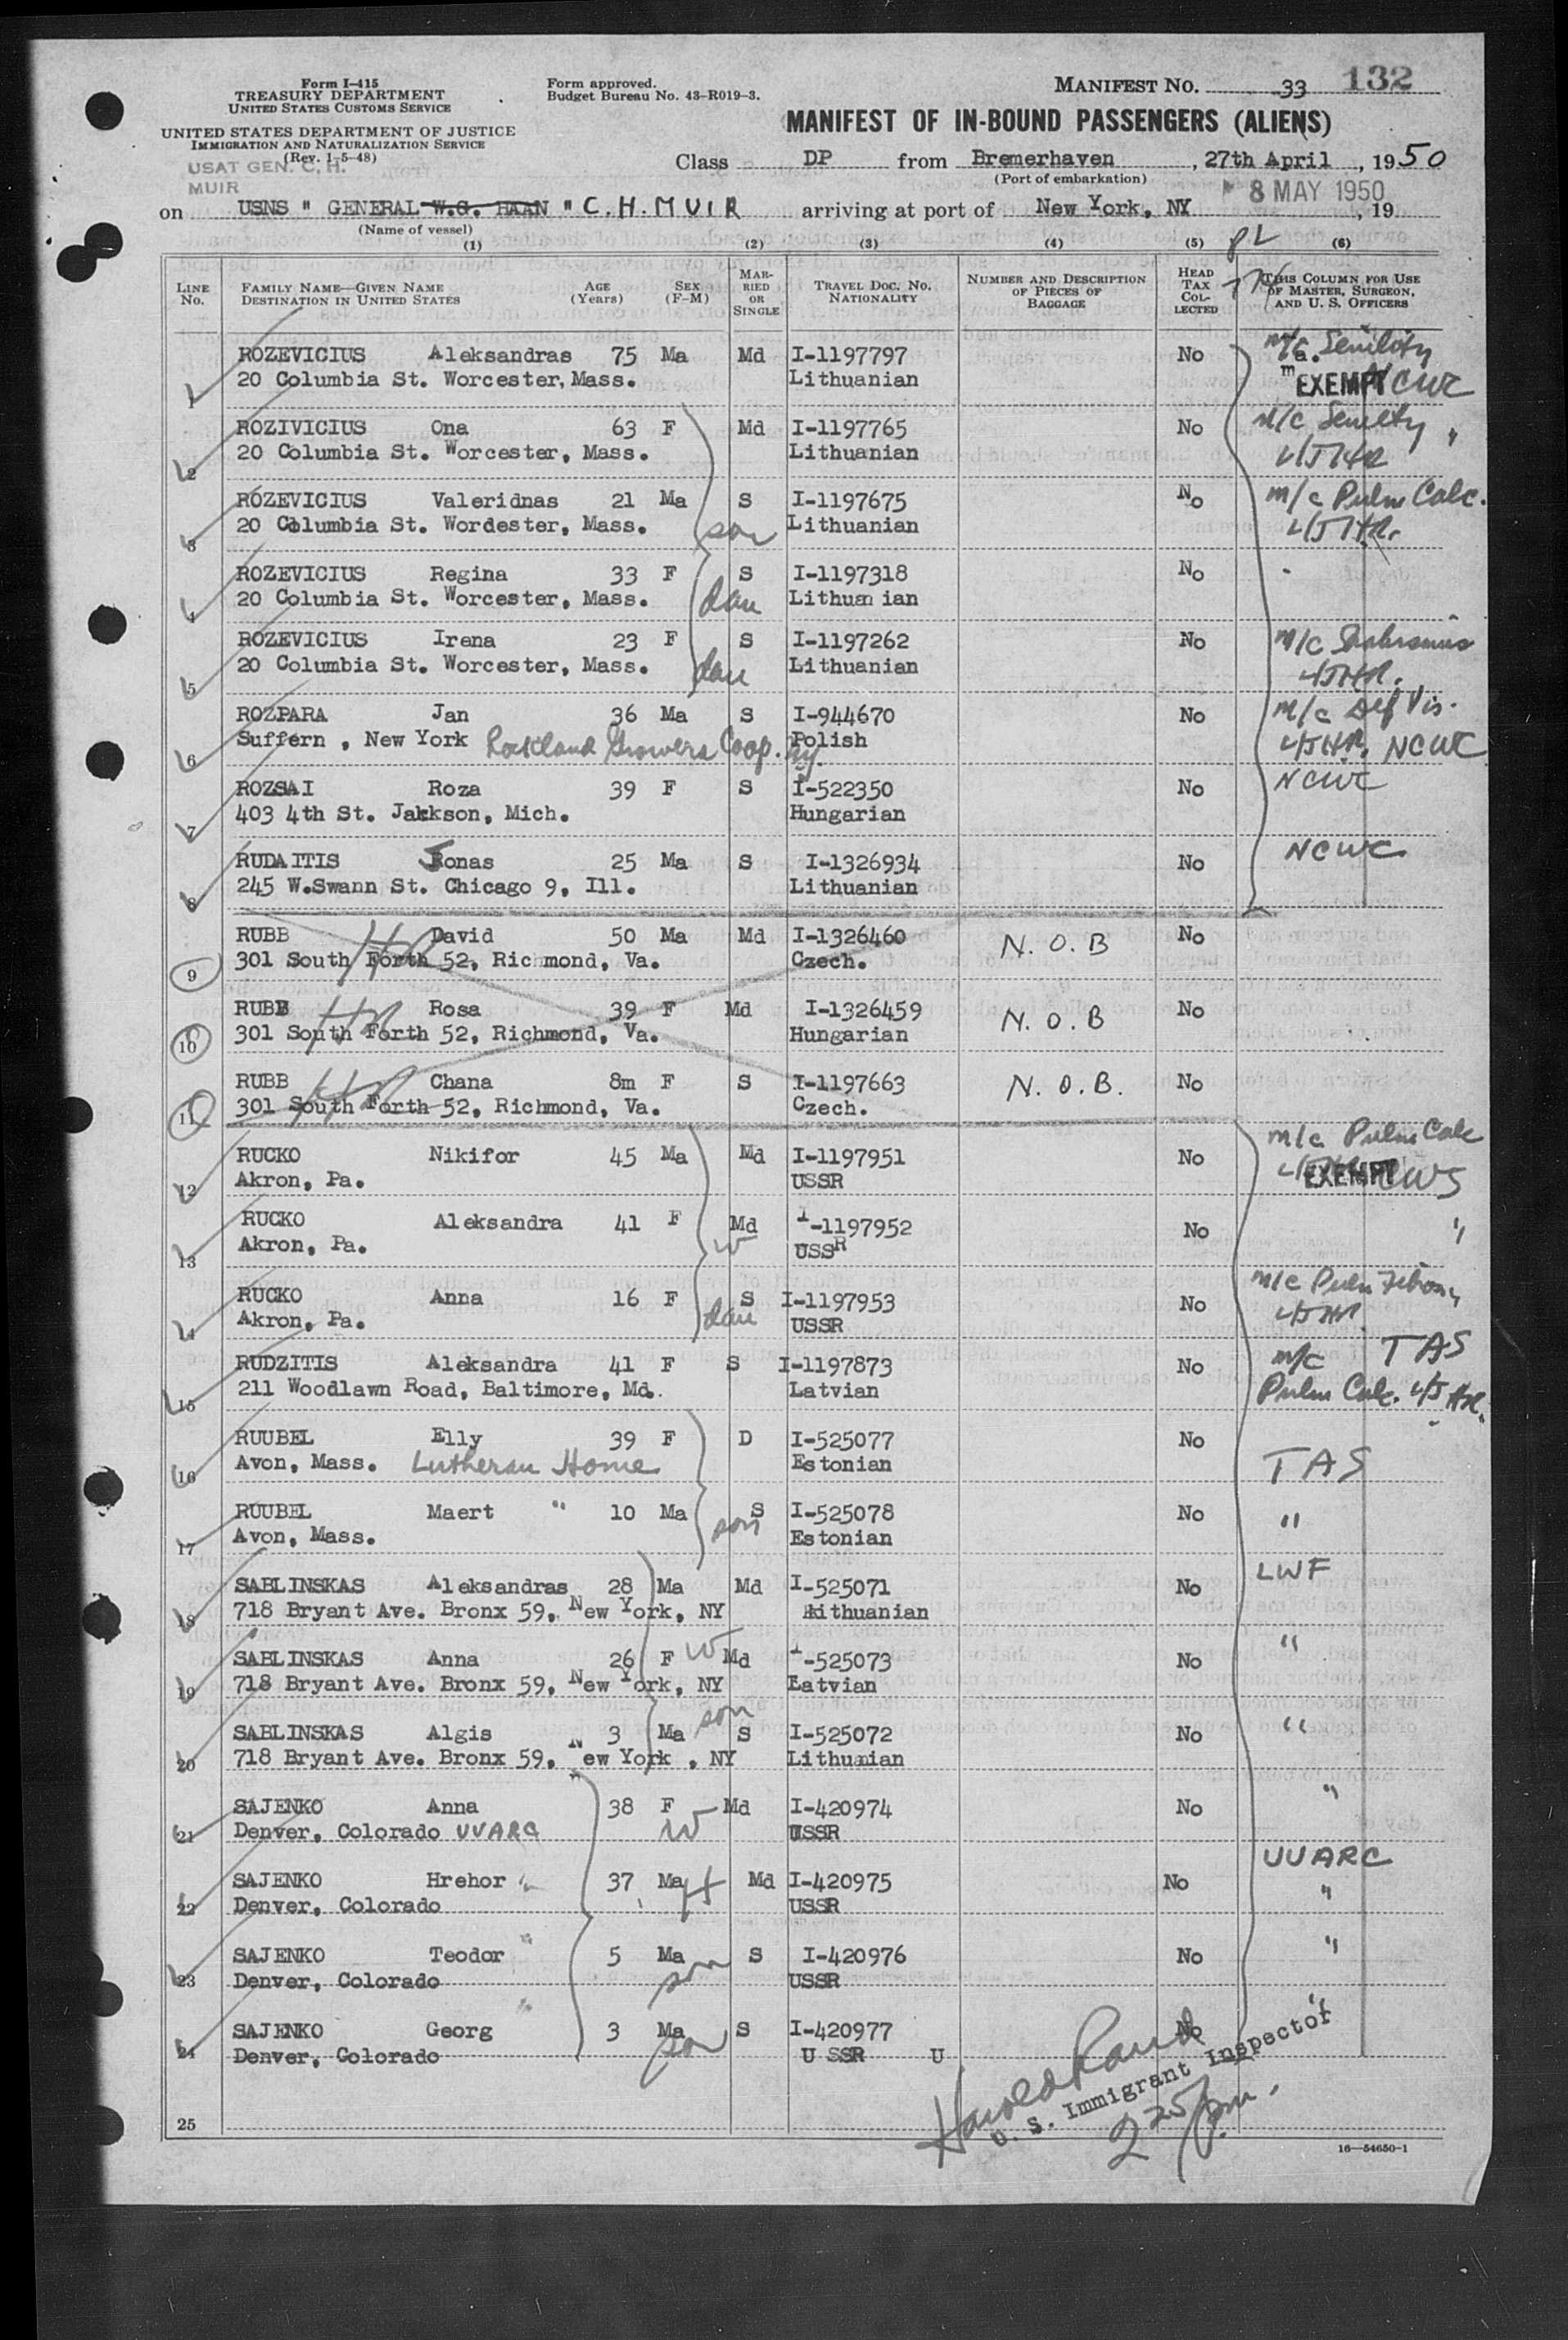 Form I-415
TREASURY DEPARTMENT
UNITED STATES CUSTOMS SERVICE
UNITED STATES DEPARTMENT OF JUSTICE
IMMIGRATION AND NATURALIZATION SERVICE
(Rev. 1-5-48)
USAT GEN. C. H.
MUIR
Form approved.
Budget Bureau No. 43-R019-3.
MANIFEST NO. 33 132
MANIFEST OF IN-BOUND PASSENGERS (ALIENS)
Class DP from Bremerhaven, 27th April, 1950
(Port of embarkation)
8 MAY 1950
on USNS " GENERAL W.G. HAAN " C.H. MUIR arriving at port of New York, NY, 19
(Name of vessel)
(1) (2) (3) (4) (5) (6)
LINE No. FAMILY NAME—GIVEN NAME DESTINATION IN UNITED STATES AGE (Years) SEX (F-M) MARRIED OR SINGLE TRAVEL DOC. NO. NATIONALITY NUMBER AND DESCRIPTION OF PIECES OF BAGGAGE HEAD TAX COLLECTED THIS COLUMN FOR USE OF MASTER, SURGEON, AND U. S. OFFICERS
ROZEVICIUS Aleksandras 75 Ma Md I-1197797 No m/c. Senility
1 20 Columbia St. Worcester, Mass. Lithuanian EXEMPT NCWC
ROZIVICIUS Ona 63 F Md I-1197765 No m/c Senility "
2 20 Columbia St. Worcester, Mass. Lithuanian
ROZEVICIUS Valeridnas 21 Ma S I-1197675 No m/c Pulm Calc.
3 20 Columbia St. Wordester, Mass. son Lithuanian
ROZEVICIUS Regina 33 F S I-1197318 No
4 20 Columbia St. Worcester, Mass. dau Lithuan ian
ROZEVICIUS Irena 23 F S I-1197262 No m/c
5 20 Columbia St. Worcester, Mass. dau Lithuanian
ROZPARA Jan 36 Ma S I-944670 No m/c Def Vis.
6 Suffern , New York Rockland Growers Coop. NY. Polish NCWC
ROZSAI Roza 39 F S I-522350 No NCWC
7 403 4th St. Jakkson, Mich. Hungarian
RUDAITIS Jonas 25 Ma S I-1326934 No NCWC
8 245 W.Swann St. Chicago 9, Ill. Lithuanian
RUBB David 50 Ma Md I-1326460 N. O. B No
9 301 South Forth 52, Ricmond, Va. Czech.
RUBB Rosa 39 F Md I-1326459 N. O. B No
10 301 South Forth 52, Richmond, Va. Hungarian
RUBB Chana 8m F S I-1197663 N. O. B. No
11 301 South Forth 52, Richmond, Va. Czech.
RUCKO Nikifor 45 Ma Md I-1197951 No m/c Pulm Calc
12 Akron, Pa. USSR EXEMPT CWS
RUCKO Aleksandra 41 F Md I-1197952 No "
13 Akron, Pa. w USSR
RUCKO Anna 16 F S I-1197953 No m/c Pulm
14 Akron, Pa. dau USSR
RUDZITIS Aleksandra 41 F S I-1197873 No m/c TAS
15 211 Woodlawn Road, Baltimore, Md. Latvian Pulm Calc.
RUUBEL Elly 39 F D I-525077 No
16 Avon, Mass. Lutheran Home Estonian TAS
RUUBEL Maert " 10 Ma S I-525078 No "
17 Avon, Mass. son Estonian
SABLINSKAS Aleksandras 28 Ma Md I-525071 No LWF
18 718 Bryant Ave. Bronx 59, New York, NY Lithuanian
SABLINSKAS Anna 26 F w Md I-525073 No "
19 718 Bryant Ave. Bronx 59, New York, NY Latvian
SABLINSKAS Algis 3 Ma son S I-525072 No "
20 718 Bryant Ave. Bronx 59, New York , NY Lithuanian
SAJENKO Anna 38 F Md I-420974 No "
21 Denver, Colorado UUARC W USSR
UUARC
SAJENKO Hrehor " 37 Ma H Md I-420975 No "
22 Denver, Colorado USSR
SAJENKO Teodor " 5 Ma S I-420976 No "
23 Denver, Colorado son USSR
SAJENKO Georg " 3 Ma S I-420977 No "
24 Denver, Colorado son U SSR U
25
Harold Rand
U. S. Immigrant Inspector
2 25 pm.
16-54650-1